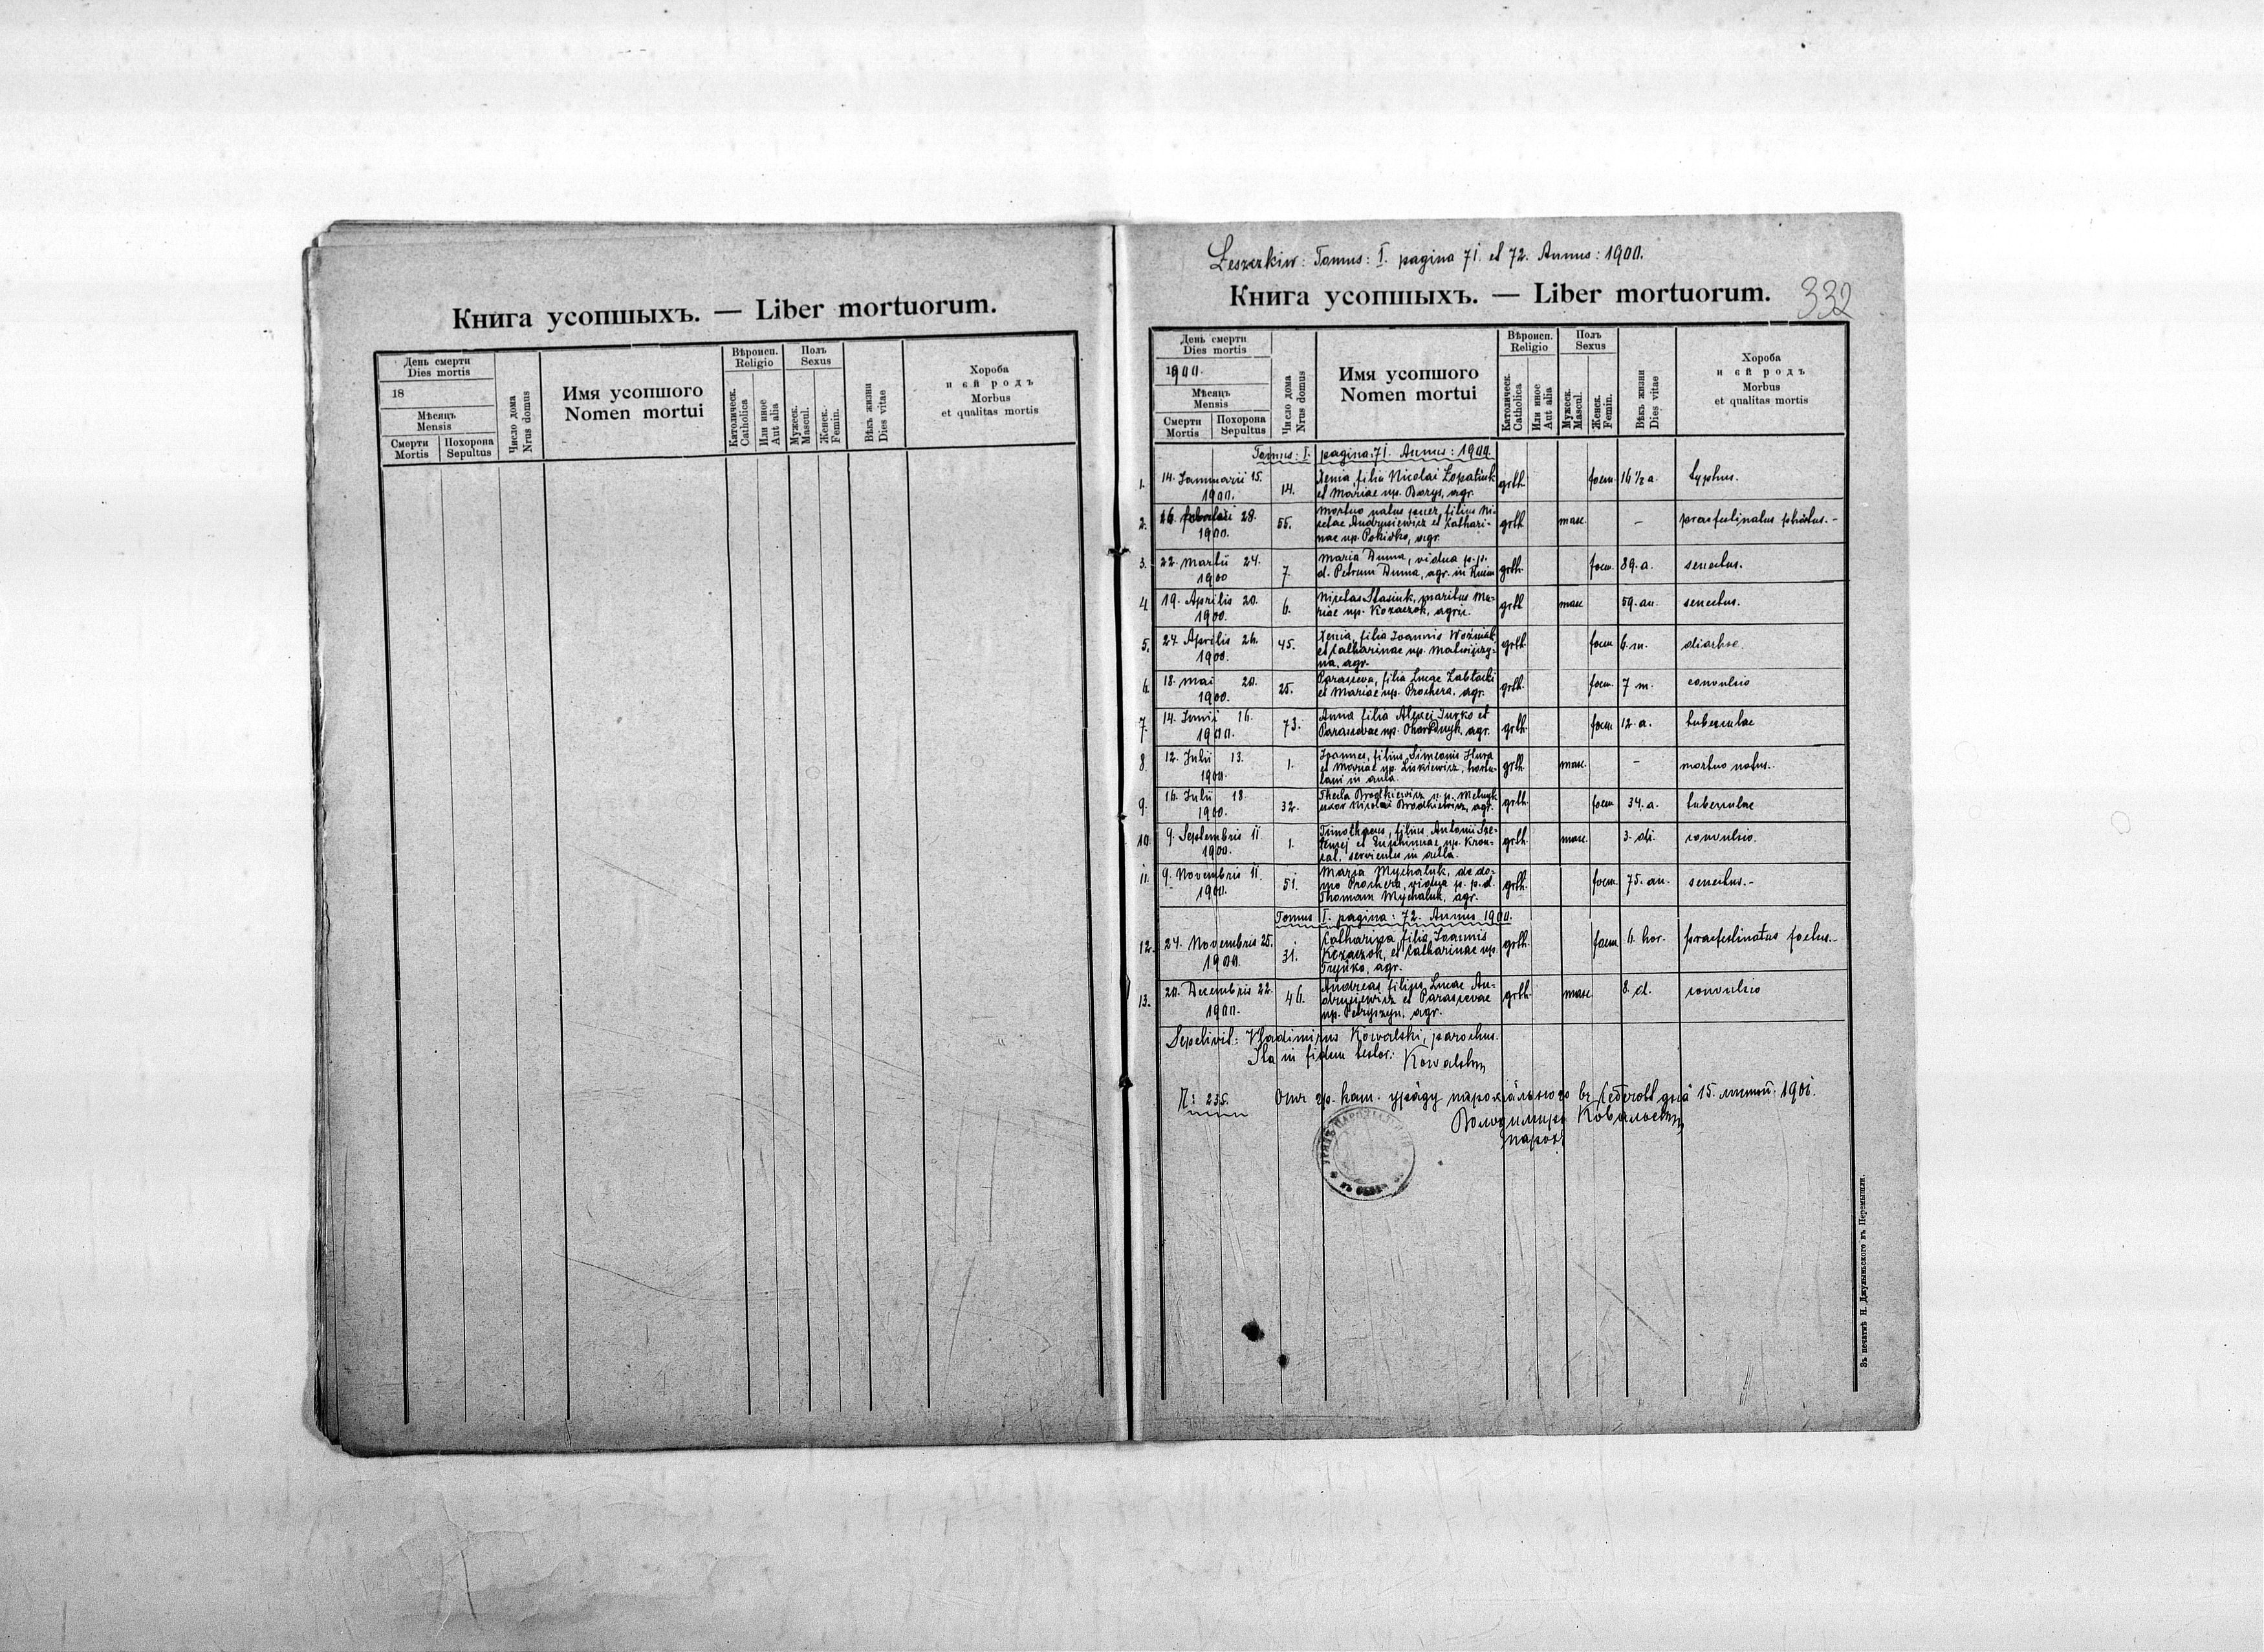 Книга усопшыхъ. — Liber mortuorum.
День смерти
Dies mortis
18
Мѣсяцъ
Mensis
Смерти
Mortis
Похорона
Sepultus
Число дома
Nrus domus
Имя усопшого
Nomen mortui
Вѣроисп.
Religio
Католическ.
Catholica
Или иное
Aut alia
Полъ
Sexus
Мужеск.
Mascul.
Женск.
Femin.
Вѣкъ жизни
Dies vitae
Хороба
и єй родъ
Morbus
et qualitas mortis
Leszczkiw: Tomus: I. pagina 71 et 72. Annus: 1900.
332
Книга усопшыхъ. — Liber mortuorum.
День смерти
Dies mortis
1900.
Мѣсяцъ
Mensis
Смерти
Mortis
Похорона
Sepultus
Число дома
Nrus domus
Имя усопшого
Nomen mortui
Вѣроисп.
Religio
Католическ.
Catholica
Или иное
Aut alia
Полъ
Sexus
Мужеск.
Mascul.
Женск.
Femin.
Вѣкъ жизни
Dies vitae
Хороба
и єй родъ
Morbus
et qualitas mortis
Tomus: I. pagina: 71. Annus: 1900.
1. 14. Januarii 15. 1900. 14. Xenia, filia Nicolai Łopatiuk
et Mariae np. Borys, agr. grth foem. 16 1/2 a. typhus.
2. 26. 28. 1900. 55. Mortuo natus puer, filius Ni-
cetae Andrusiewicz et Cathari-
nae np. agr. grth masc. — praefestinatus
3. 22. Martii 24. 1900 7. Maria Duma, vidua p. p.
d. Petrum Duma, agr. in grth. foem. 89. a. senectus.
4. 19. Aprilis 20. 1900. 6. Nicetas Stasiuk, maritus Ma-
riae np. Kozaczok, agric. grth masc 59. an. senectus.
5. 24. Aprilis 26. 1900. 45. Xenia, filia Joannis Woźniak
et Catharinae np. Matwijczy-
na, agr. grth. foem 6. m. diarhoe.
6. 18. Mai 20. 1900. 25. Parasceva, filia Lucae Zabłocki
et Mariae np. Prochera, agr. grth. foem. 7 m. convulsio
7. 14. Junii 16. 1900. 73. Anna filia Alexei Jurko et
Parascevae np. agr. grth. foem 12. a. tuberculae
8. 12. Julii 13. 1900. 1. Joannes, filius Simeonis Hura
et Mariae np. Liskiewicz, hortu-
lani in aula. grth masc. — mortuo natus.
9. 16. Julii 18. 1900. 32. Thecla Brodkiewicz n. p. Melnyk
uxor Nicolai Brodkiewicz, agr. grth. foem 34. a. tuberculae
10. 9. Septembris 11. 1900. 1. Timotheus, filius Antonii
et Euphimiae np.
servientis in aula. grth. masc. 3. di. convulsio.
11. 9. Novembris 11. 1900. 51. Maria Mychaluk, de do-
mo Prochera, vidua p. p. d.
Thomam Mychaluk, agr. grth. foem 75. an. senectus. -
Tomus I. pagina: 72. Annus 1900.
12. 24. Novembris 25. 1900. 31. Catharina, filia Joannis
Kozaczok, et Catharinae np.
agr. grth. foem 6. hor. praefestinatus foetus. -
13. 20. Decembris 22. 1900. 46. Andreas, filius Lucae An-
drusiewicz et Parascevae
np. Petryszyn, agr. grth. masc 8. d. convulsio
Sepelivit: Vladimirus Kowalski, parochus.
Ita in fidem testor: Kowalskij
Ч: 235. Отъ гр. кат. уряду парохіального въ дня 15. 1901.
Володимиръ Ковальскій
парох
Зъ печатнѣ Н. Джулыньского въ Перемышли.